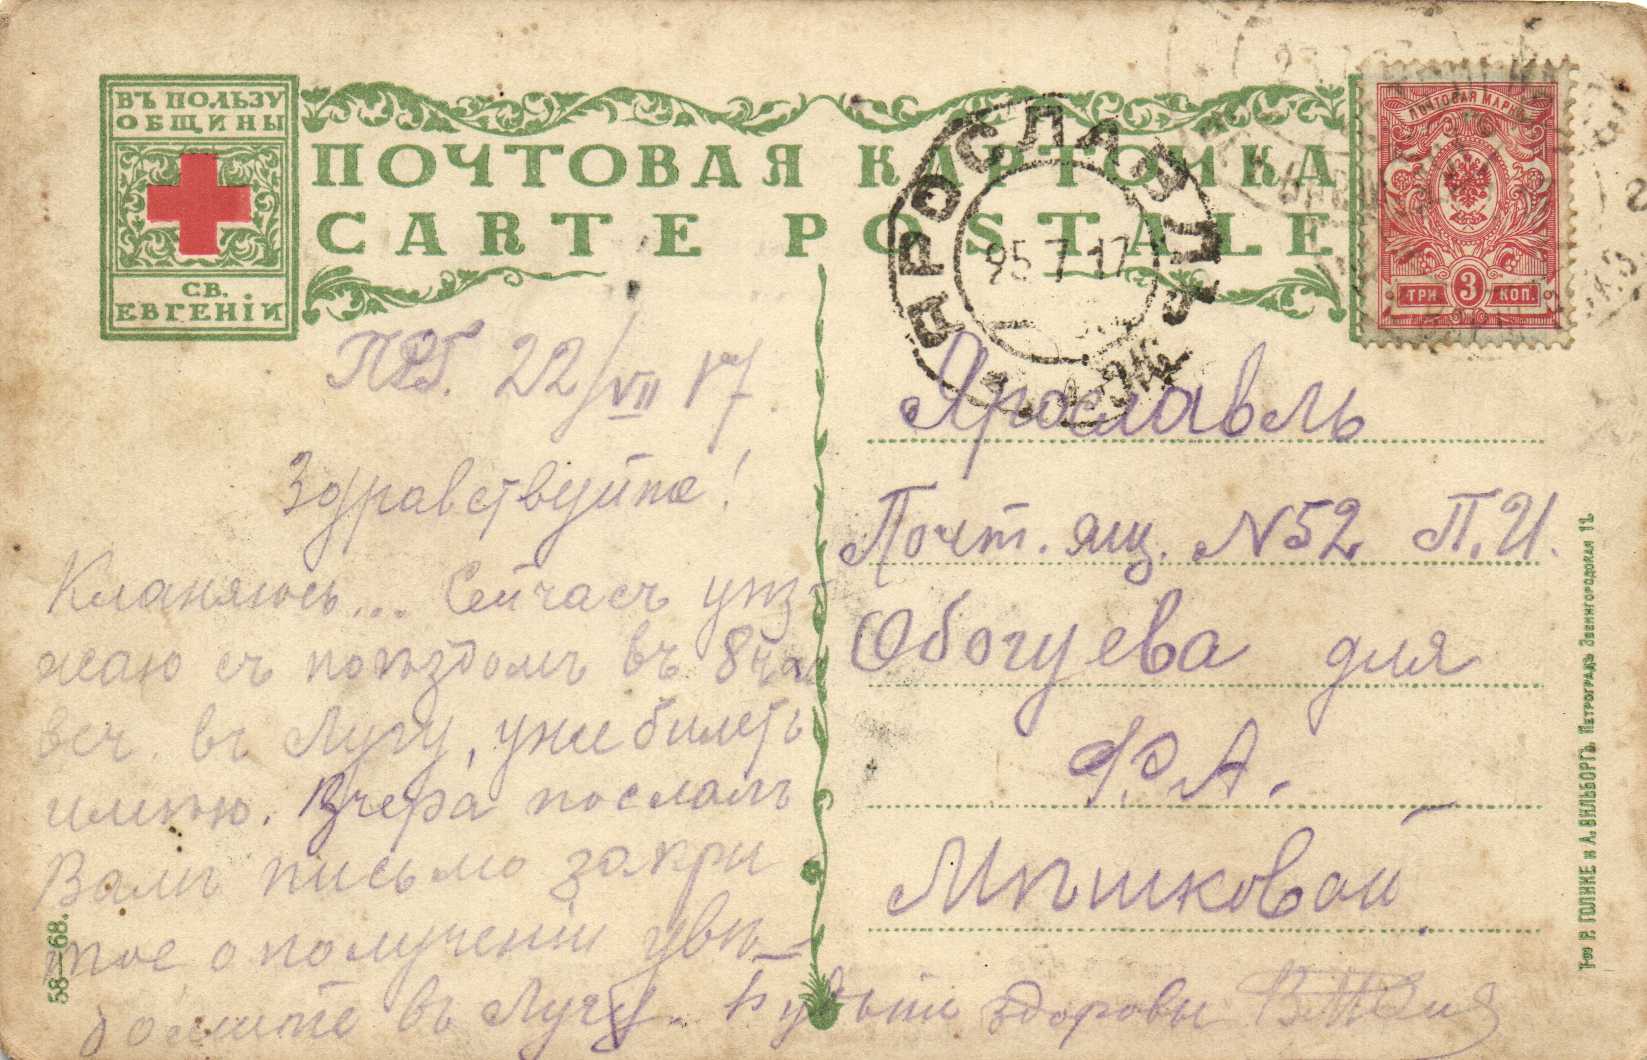 ВЪ ПОЛЬЗУ
ОБЩИНЫ
СВ.
ЕВГЕНІИ
ПОЧТОВАЯ КАРТОЧКА
CARTE POSTALE
ЯРОСЛАВЛЬ
25 7 17
ПОЧТОВАЯ МАРКА
ТРИ 3 КОП.
ПРГ. 22/VII 17.
Здравствуйте!
Кланяюсь... Сейчасъ уѣз
жаю съ поѣздомъ въ 8 час
веч. въ Лугу, уже билетъ
имѣю. Вчера послалъ
Вамъ письмо закры
тое о полученіи увѣ-
домите въ Лугу. Будьте здоровы
Ярославль
Почт. ящ. №52 П.И.
Обогуева для
Ф.А.
Мѣшковой
58—68.
Т-во Р. ГОЛИКЕ и А. ВИЛЬБОРГЪ. ПЕТРОГРАДЪ ЗВЕНИГОРОДСКАЯ 11.